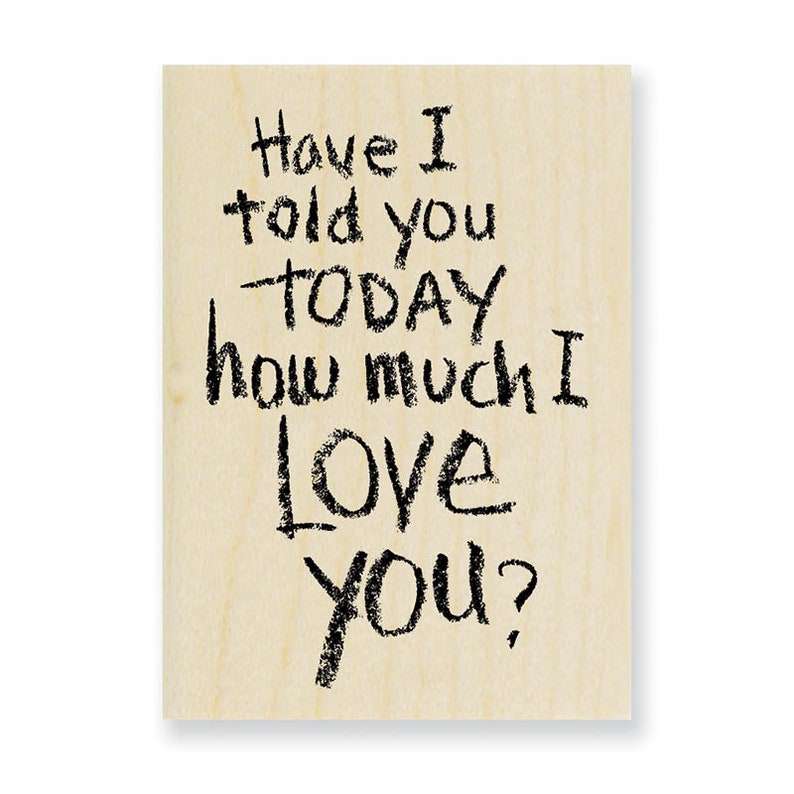 Have I
told you
TODAY
how much I
Love
you?